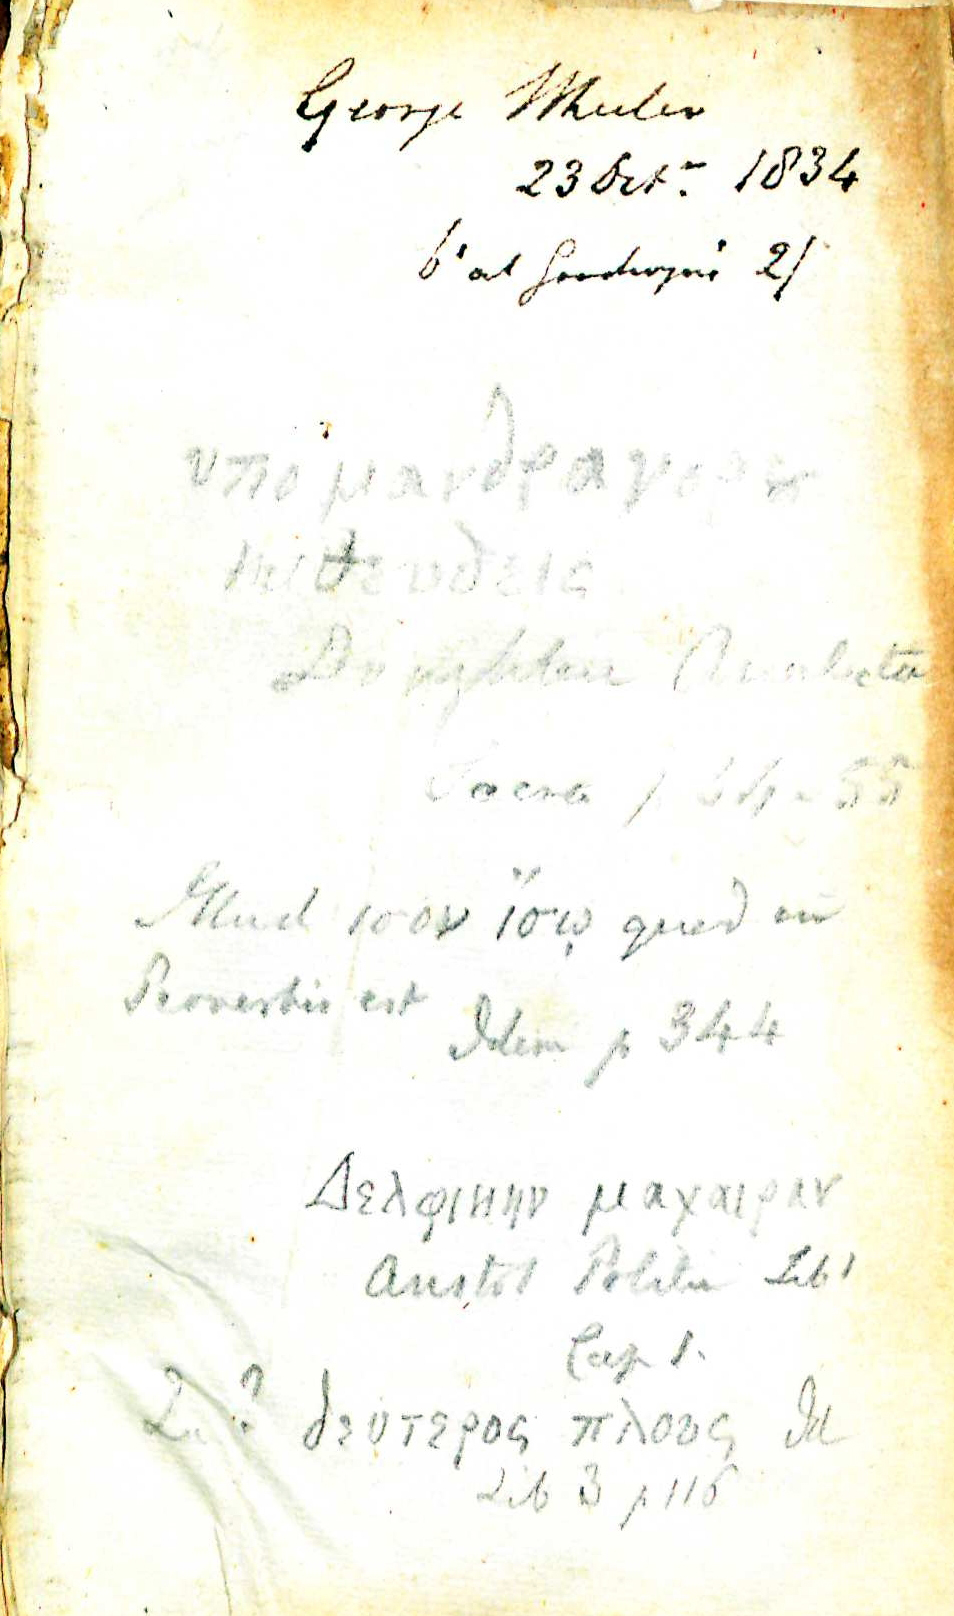 George Wheeler
23 Octr. 1834
bt at 2/
υπο μανδραγορᾳ
Analecta
Sacra p 55
Illud ισον ἴσῳ quod in
Proverbiis est
Idem p 344
Δελφικην μαχαιραν
Aristot Politic Lib 1
Cap 1.
? δευτερος πλους Id
Lib 3 p 116